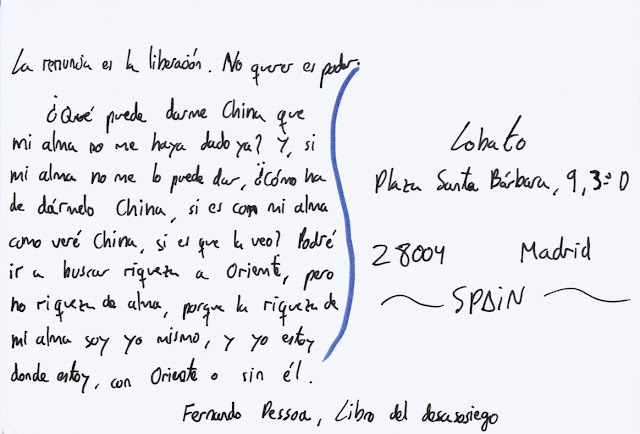 La renuncia es la liberación. No querer es poder.
¿Qué puede darme China que
mi alma no me haya dado ya? Y, si
mi alma no me lo puede dar, ¿Cómo ha
de dármelo China, si es con mi alma
como veré China, si es que la veo? Podré
ir a buscar riqueza a Oriente, pero
no riqueza de alma, porque la riqueza de
mi alma soy yo mismo, y yo estoy
donde estoy, con Oriente o sin él.
Fernando Pessoa, Libro del desasosiego
Lobato
Plaza Santa Bárbara, 9, 3º D
28004 Madrid
SPAIN